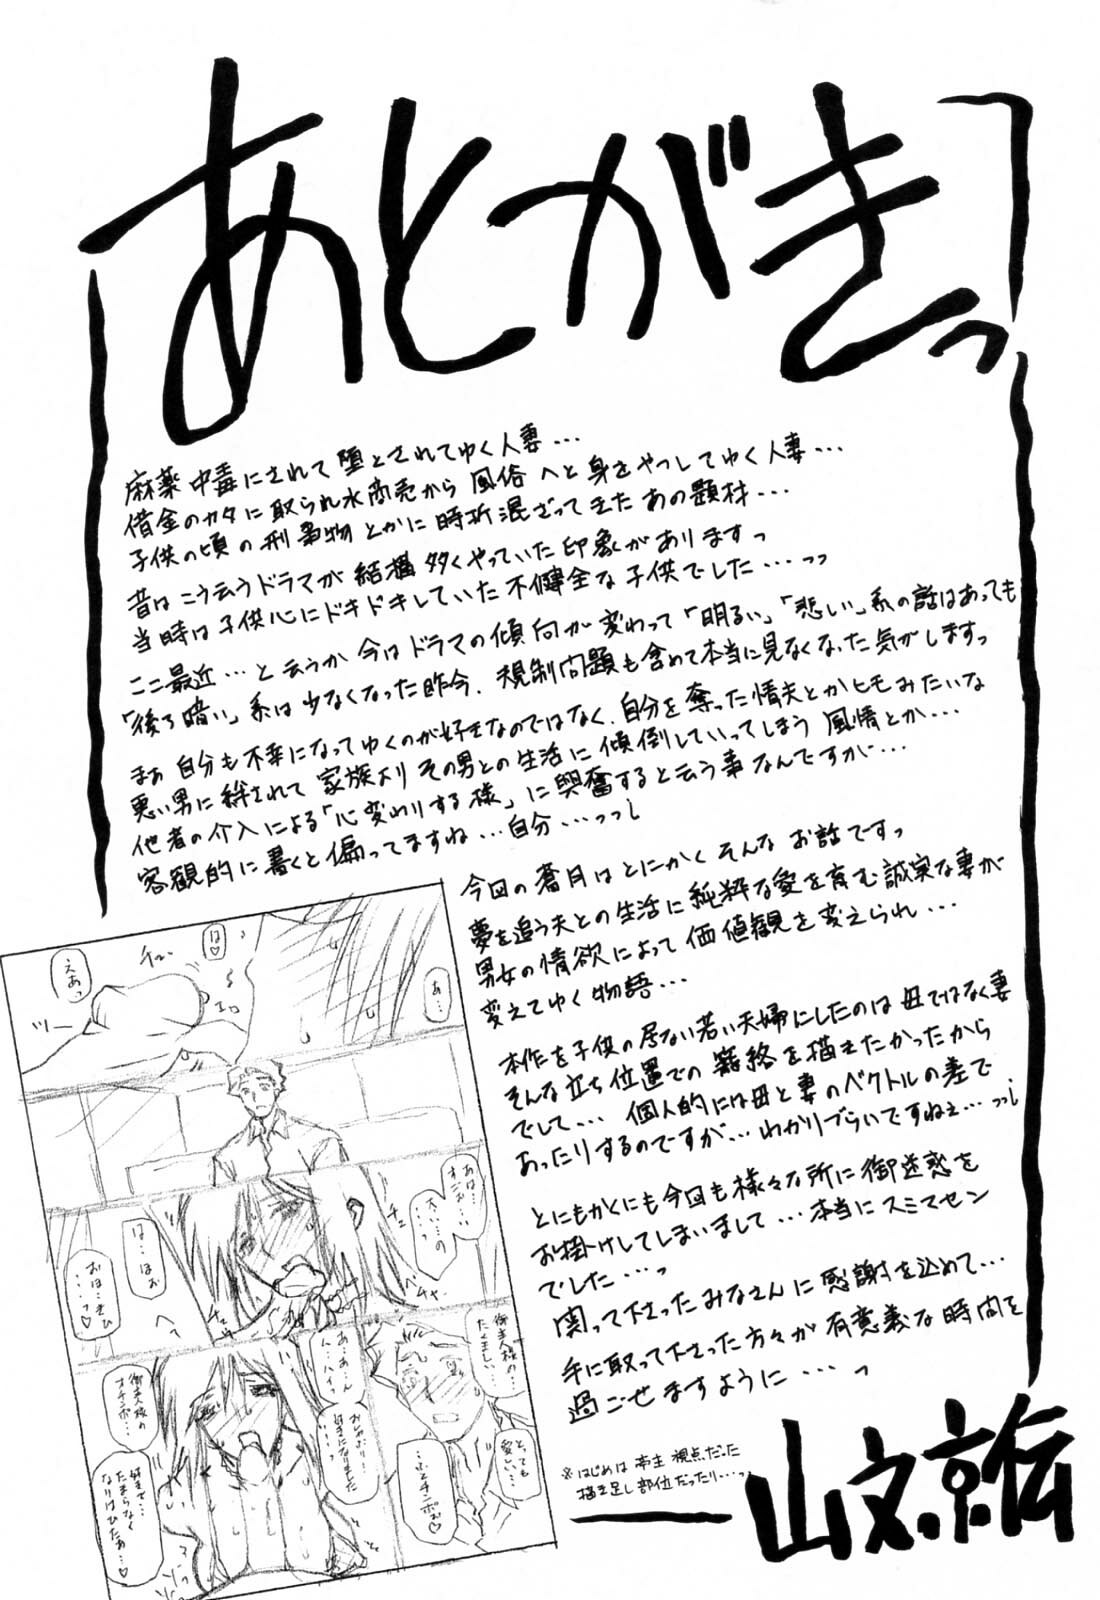 あとがきっ
麻薬中毒にされて堕とされてゆく人妻...
借金のカタに取られ水商売から風俗へと身をやつしてゆく人妻...
子供の頃の刑事物とかに時折混ざってきたあの題材...
昔はこう云うドラマが結構多くやっていた印象がありますっ
当時は子供心にドキドキしていた不健全な子供でした...っっ
ここ最近...と云うか今はドラマの傾向が変わって「明るい」「悲しい」系の話はあっても
「後ろ暗い」系は少なくなった昨今、規制問題も含めて本当に見なくなった気がしますっ
まぁ自分も不幸になってゆくのが好きなのではなく、自分を奪った情夫とかヒモみたいな
悪い男に絆されて家族よりその男との生活に傾倒していってしまう風情とか...
他者の介入による「心変わりする様」に興奮すると云う事なんですが...
客観的に書くと偏ってますね...自分...っっ
今回の蒼月はとにかくそんなお話ですっ
夢を追う夫との生活に純粋な愛を育む誠実な妻が
男女の情欲によって価値観を変えられ...
変えてゆく物語...
本作を子供の居ない若い夫婦にしたのは母ではなく妻
そんな立ち位置での籠絡を描きたかったから
でして...個人的には母と妻のベクトルの差で
あったりするのですが...わかりづらいですねぇ...っっ
とにもかくにも今回も様々な所に御迷惑を
お掛けしてしまいまして...本当にスミマセン
でした...っ
関って下さったみなさんに感謝を込めて...
手に取って下さった方々が有意義な時間を
過ごせますように...っ
※はじめは 視点だった
描き足し部位だったり...っ
山文京伝
あ...
は♡
チュ
えあっ
ツー
あは...
すごお...
大い...の
チュ
は...はお
おは...きひ
...っ♡
御主人様の...
たくましい...
とっても
愛しい...
あ...あ...ん
ん...ハイっ
おしゃぶり...
好きになりました
御主人様の
オチンポ...
好きで...
たまらなく
なりはひたぁ...♡